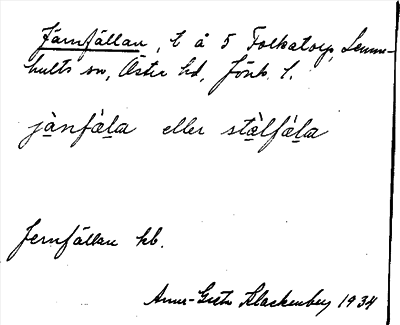 Järnfällan, t å 5 Folkatorp, Lemn-
hults sn, Östra hd, Jönk. l.
jànfàla eller stàlfàla
Jernfällan kb.
Anna-Greta Klackenberg 1934